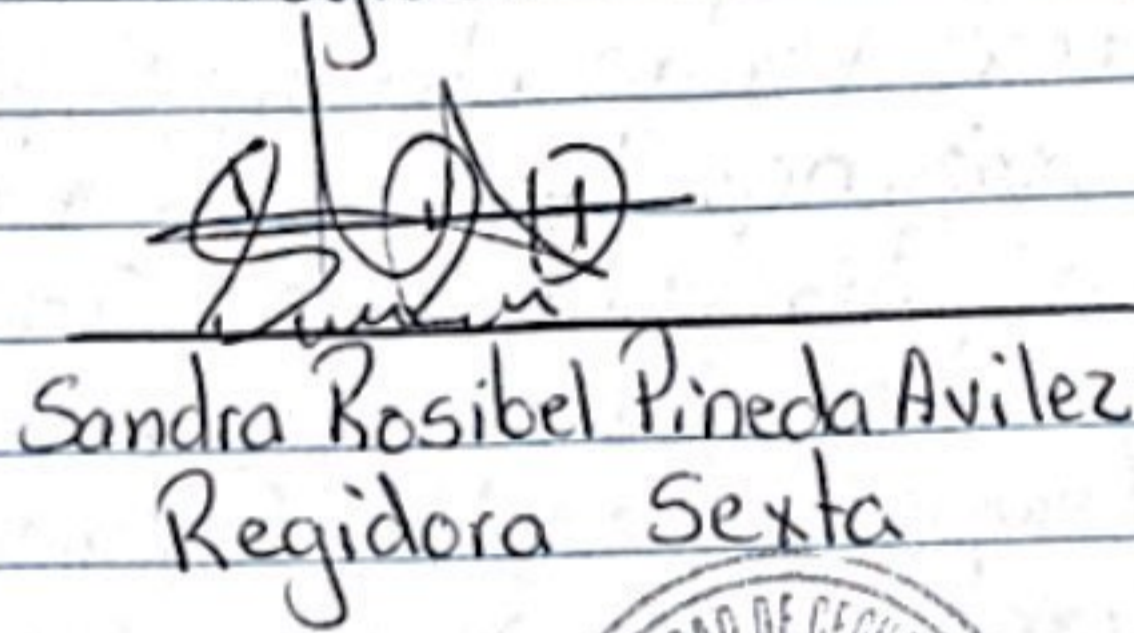 Sandra Rosibel Pineda Avilez
Regidora Sexta
DE